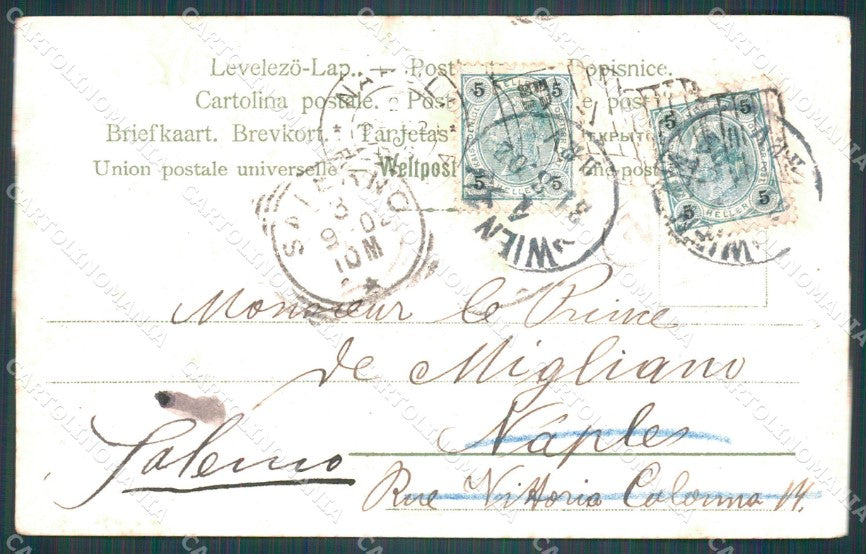 Levelezö-Lap. Post Dopisnice.
Cartolina postale. Post e post
Briefkaart. Brevkort. Tarjetas
Union postale universelle Weltpost ne post
5 5
5 5
HELLER
5 5
5 5
HELLER
WIEN
WIEN
SALERNO
3
9 02
10M
Monsieur le Prince
de Migliano
Naples
Salerno
Rue Vittoria Colonna 14.
CARTOLINOMANIA